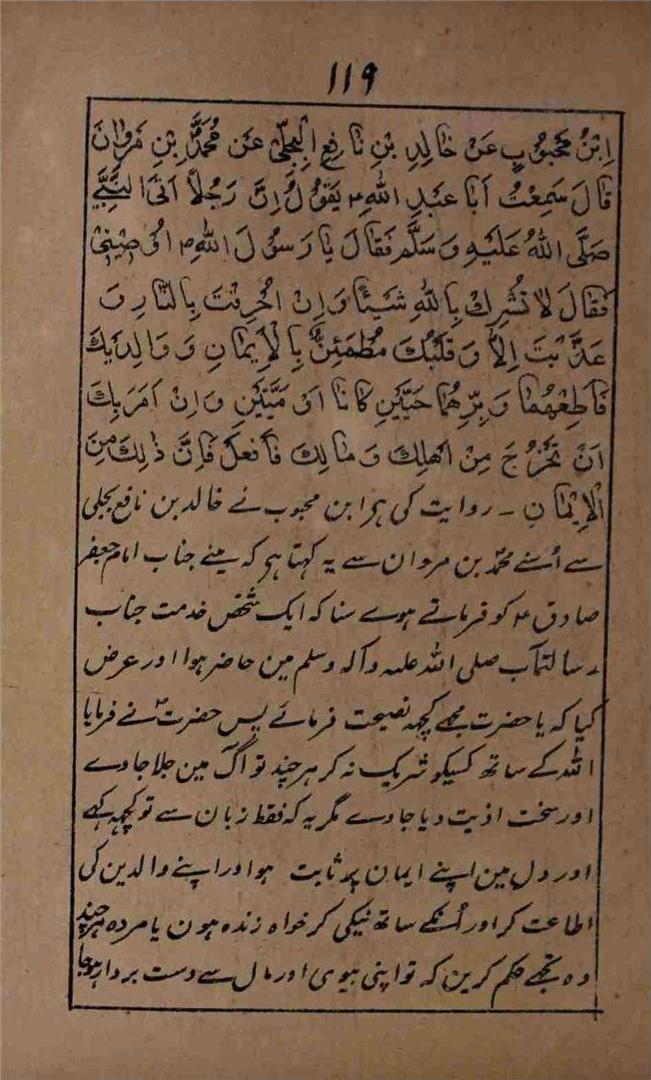 ۱۱۹
اِبْنُ مَحْبُوْبٍ عَنْ خَالِدِ بْنِ نَافِعِ الْبَجَلِّیْ عَنْ مُحَمَّدِ بْنِ مَرْوَانَ
قَالَ سَمِعْتُ اَبَا عَبْدِ اللّٰهِ ؑ یَقُوْلُ اِنَّ رَجُلًا اَتَی النَّبِیَّ
صَلَّی اللّٰهُ عَلَیْهِ وَسَلَّمَ فَقَالَ یَا رَسُوْلَ اللّٰهِ ؐ اَوْصِنِیْ
فَقَالَ لَا تُشْرِكْ بِاللّٰهِ شَیْئًا وَاِنْ اُحْرِقْتَ بِالنَّارِ وَ
عَذَّبْتَ اِلَّا وَقَلْبُكَ مُطْمَئِنٌّ بِالْاِیْمَانِ وَ وَالِدَیْكَ
فَاَطِعْهُمَا وَ بِرَّهُمَا حَیَّیْنِ كَانَا اَوْ مَیِّتَیْنِ وَاِنْ اَمَرَ بِكَ
اَنْ تَخْرُجَ مِنْ اَهْلِكَ وَ مَالِكَ فَافْعَلْ فَاِنَّ ذٰلِكَ مِنَ
الْاِیْمَانِ ۔ روایت کی ہر ابن محبوب نے خالد بن نافع بجلی
سے اُسنے محمّد بن مروان سے یہ کہتا ہر کہ مینے جناب امام جعفر
صادق ؑ کو فرماتے ہوے سنا کہ ایک شخص خدمت جناب
رسالتمآب صلی اللہ علیہ وآلہ وسلم مین حاضر ہوا اور عرض
کیا کہ یا حضرت مجھے کچھہ نصیحت فرمائے پس حضرت ؐ نے فرمایا
اللہ کے ساتھ کسیکو شریک نہ کر ہر چند تو آگ مین جلا جاوے
اور سخت اذیت دیا جاوے مگر یہ کہ فقط زبان سے تو کچھہ کہے
اور دل مین اپنے ایمان پر ثابت ہو اور اپنے والدین کی
اطاعت کر اور اُنکے ساتھ نیکی کر خواہ زندہ ہون یا مردہ ہر چند
وہ تجھے حکم کرین کہ تو اپنی بیوی اور مال سے دست بردار ہو جا